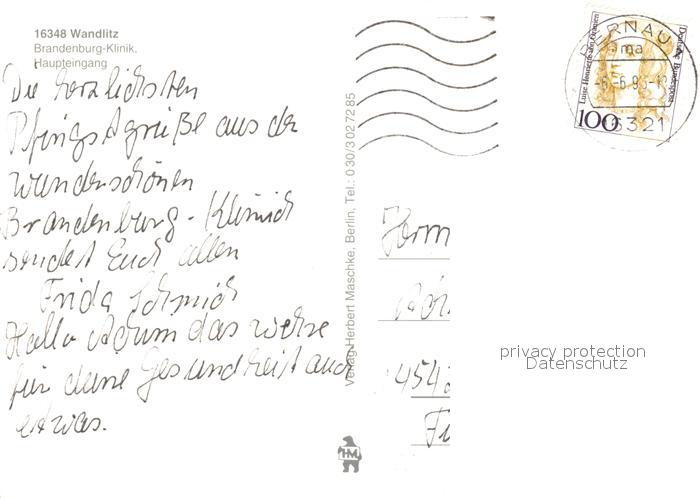 16348 Wandlitz
Brandenburg-Klinik,
Haupteingang
Die herzlichsten
Pfingstgrüße aus der
wunderschönen
Brandenburg-Klinick
sendet Euch allen
Frida Schmidt
Hallo das
für deine Gesundheit auch
etwas.
Verlag Herbert Maschke, Berlin, Tel.: 0 30/3 02 72 85
HM
Deutsche Bundespost
Luise Henriette von Oranien
100
BERNAU
-6.-6.95-
16321
Herrn
454
privacy protection
Datenschutz